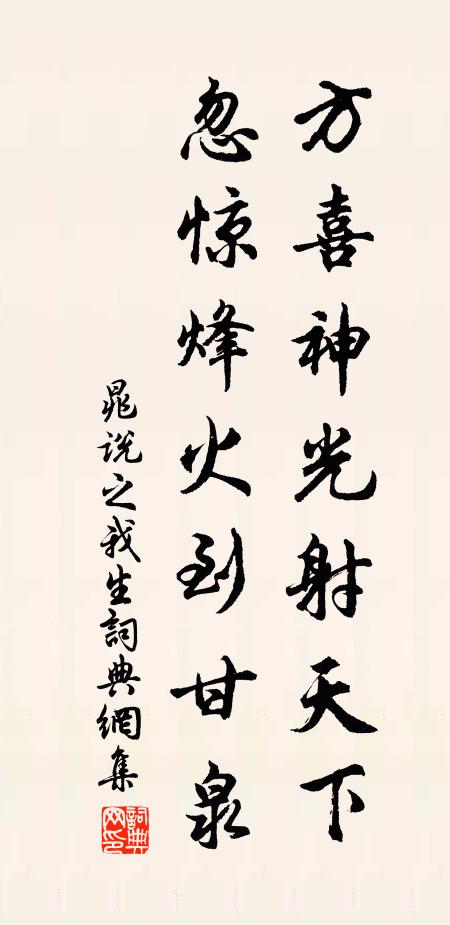 方喜神光射天下
忽惊烽火到甘泉
晁说之我生詞典網集
詞典網印